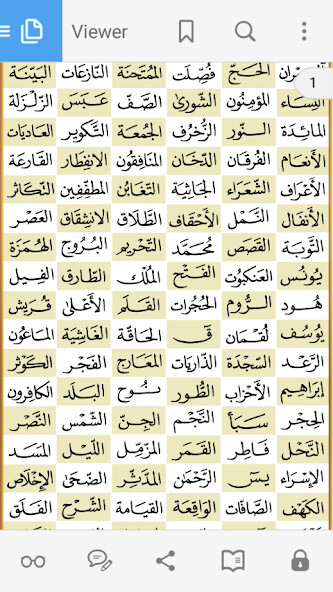 Viewer
1
آل عمران الحَجّ فُصِّلَت المُمْتَحنَة النّازعَات البَيّنَة
النِّسَاء المؤمِنُون الشّورىٰ الصَّف عَبَسَ الزّلزَلة
المائِدَة النّور الزّخرُف الجُمُعَة التّكوير العَاديَات
الأنعَام الفُرقَان الدّخَان المنَافِقون الانفِطار القَارعَة
الأعرَاف الشّعَرَاء الجَاثِيَة التغَابُن المطفّفِين التّكاثر
الأنفَال النَّمْل الأحقَاف الطّلَاق الانشِقاق العَصْر
التّوبَة القَصَص مُحَمَّد التّحْريم البُرُوج الهُمَزة
يُونُس العَنكبُوت الفَتْح المُلْك الطّارق الفِيل
هُود الرُّوم الحُجُرات القَلَم الأعْلى قُرَيش
يُوسُف لُقمَان قٓ الحَاقَّة الغَاشِيَة الماعُون
الرَّعْد السَّجْدَة الذّاريَات المعَارج الفَجْر الكَوْثَر
إبراهِيم الأحْزاب الطُّور نُوح البَلَد الكافِرون
الحِجْر سَبَأ النَّجْم الجِنّ الشّمْس النَّصْر
النَّحْل فَاطِر القَمَر المزّمِّل اللّيْل المَسَد
الإسْراء يسٓ الرَّحمٰن المدَّثّر الضّحَى الإخلَاص
الكَهْف الصَّافات الوَاقِعَة القِيَامَة الشَّرح الفَلَق